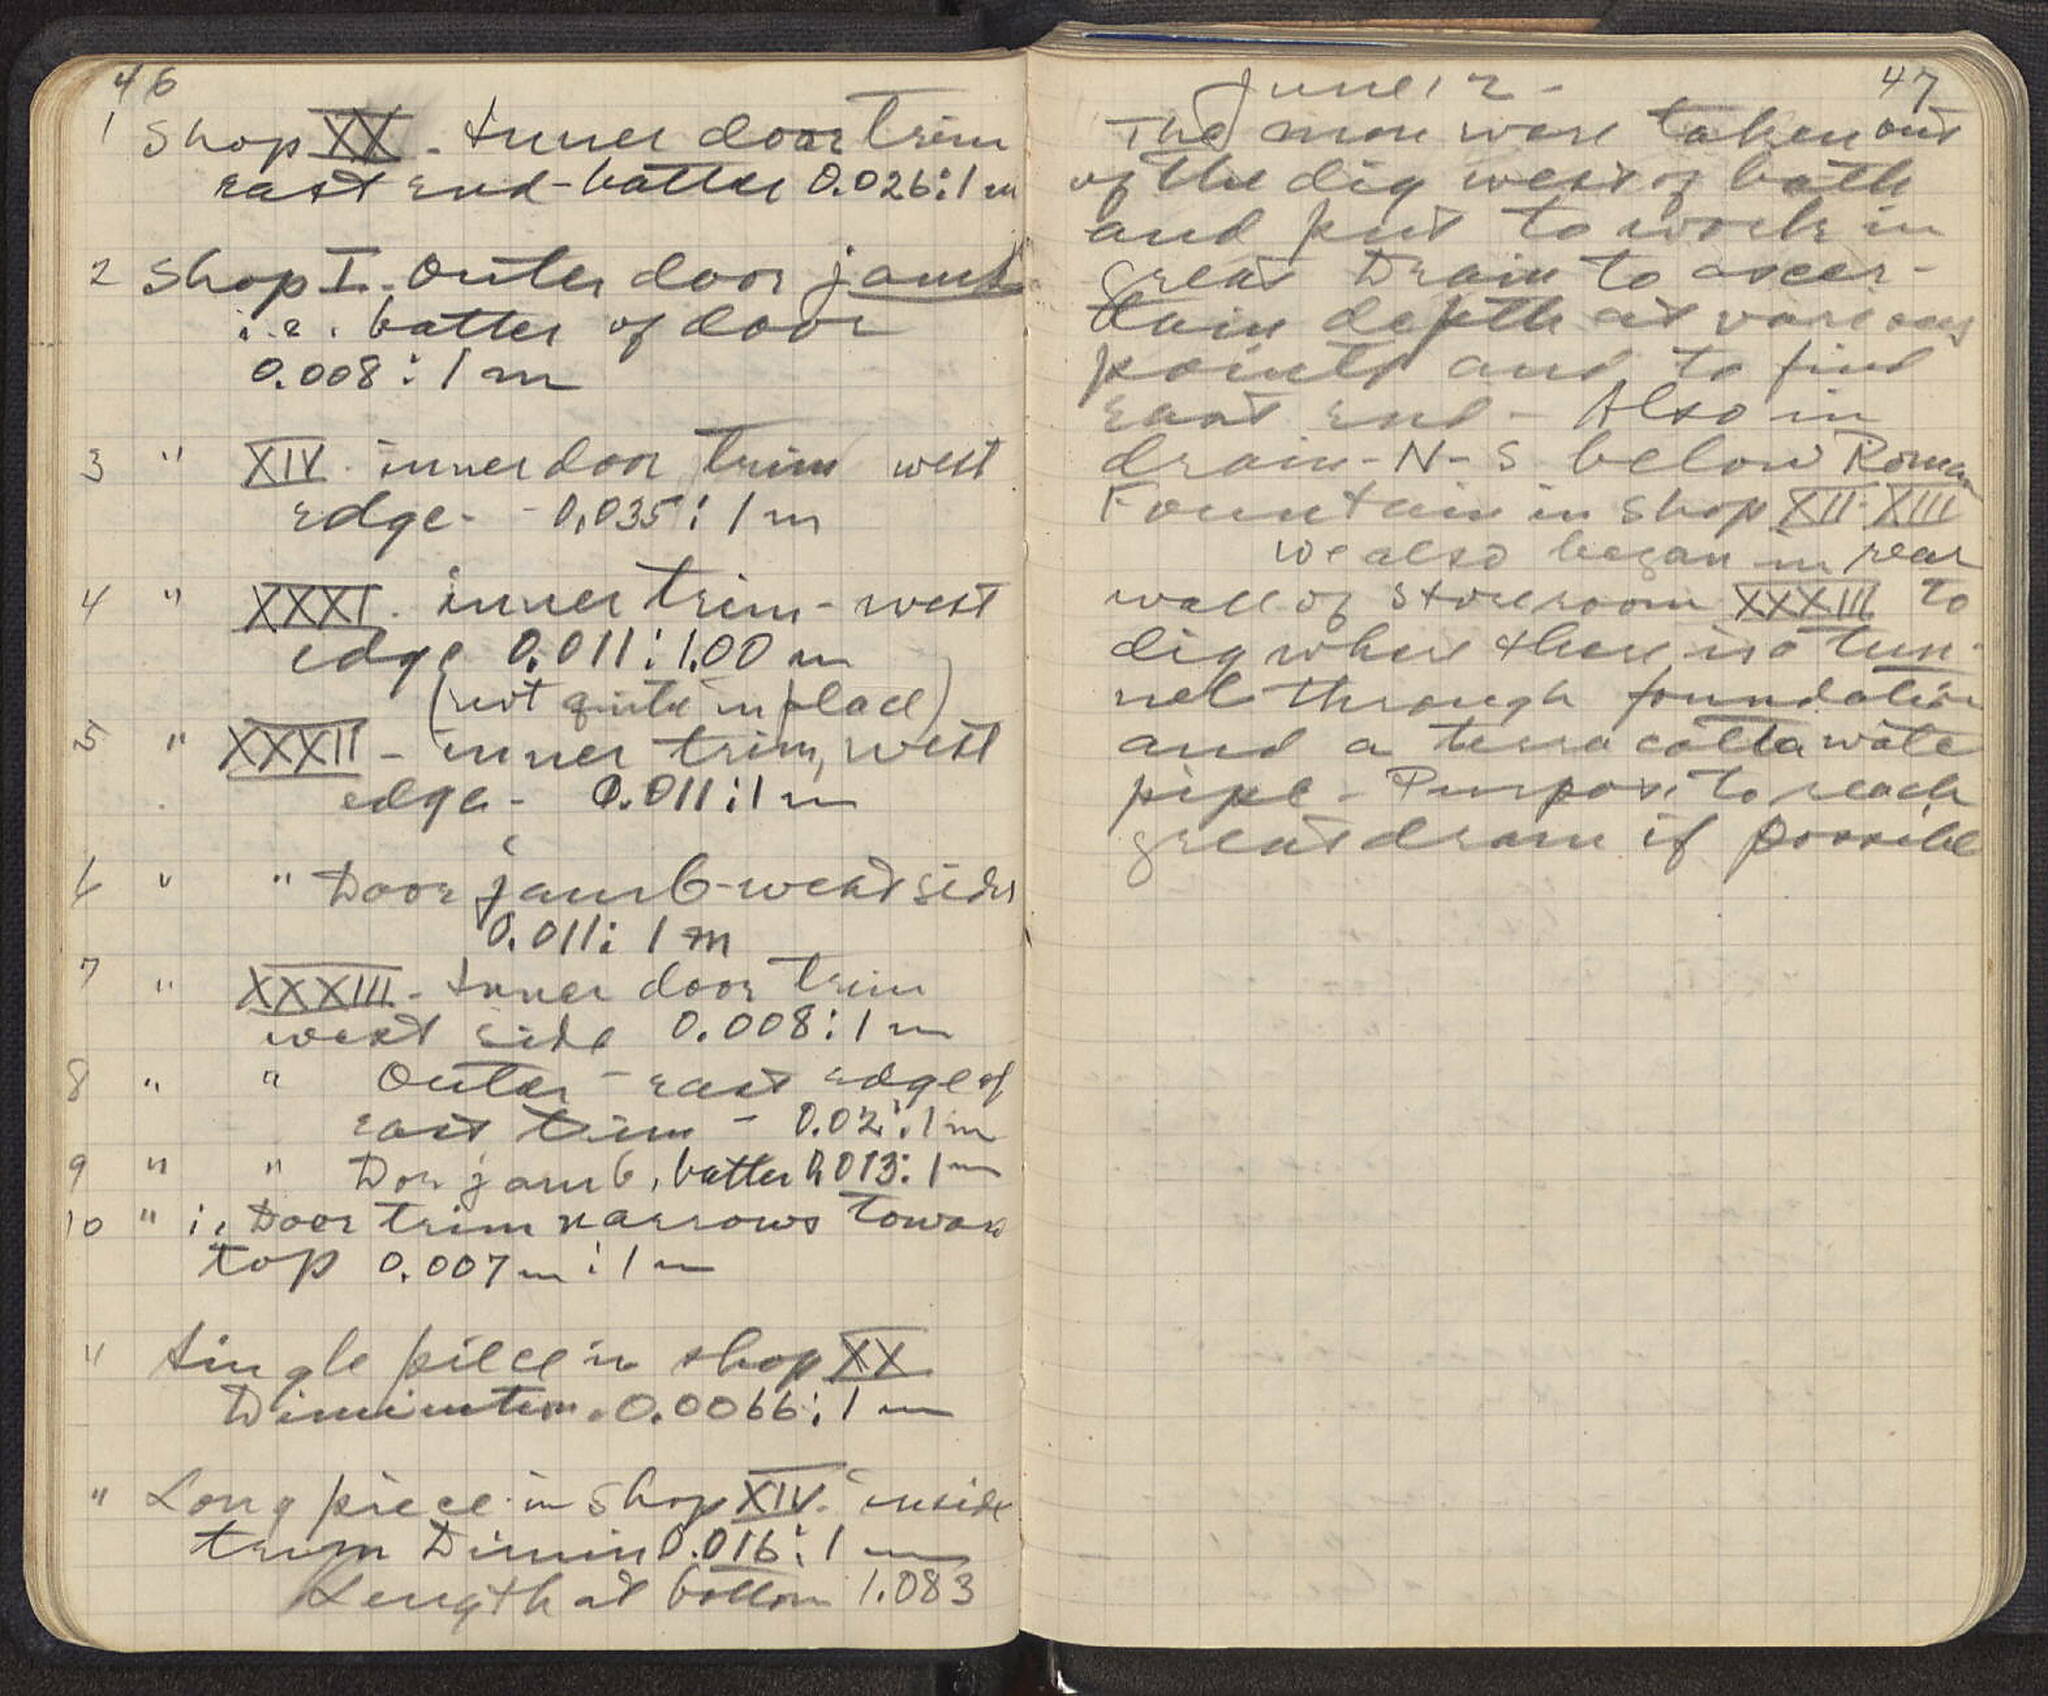 46
1 Shop XX - Inner door trim
east end - batter 0.026:1 m
2 Shop I - Outer door jamb
i.e. batter of door
0.008:1 m
3 " XIV. inner door trim west
edge - - 0.035:1 m
4 " XXXI. inner trim - west
edge 0.011:1.00 m
(not quite in place)
5 " XXXII - inner trim, west
edge - 0.011:1 m
6 " " Door jamb - west side
0.011:1 m
7 " XXXIII - Inner door trim
west side 0.008:1 m
8 " " Outer - east edge of
east trim - 0.02:1 m
9 " " Door jamb, batter 0.013:1 m
10 " Door trim narrows toward
top 0.007 m:1 m
" Single piece in shop XX
Diminution. 0.0066:1 m
" Long piece in shop XIV. inside
trim Dimin 0.016:1 m
Length at bottom 1.083
47
June 12 -
The men were taken out
of the dig west of bath
and put to work in
Great Drain to ascer-
tain depth at various
points and to find
east end - Also in
drain - N-S below Roman
Fountain in shop XII-XIII
We also began in rear
wall of storeroom XXXIII to
dig where there is a tun-
nel through foundation
and a terracotta water
pipe - Purpose to reach
great drain if possible